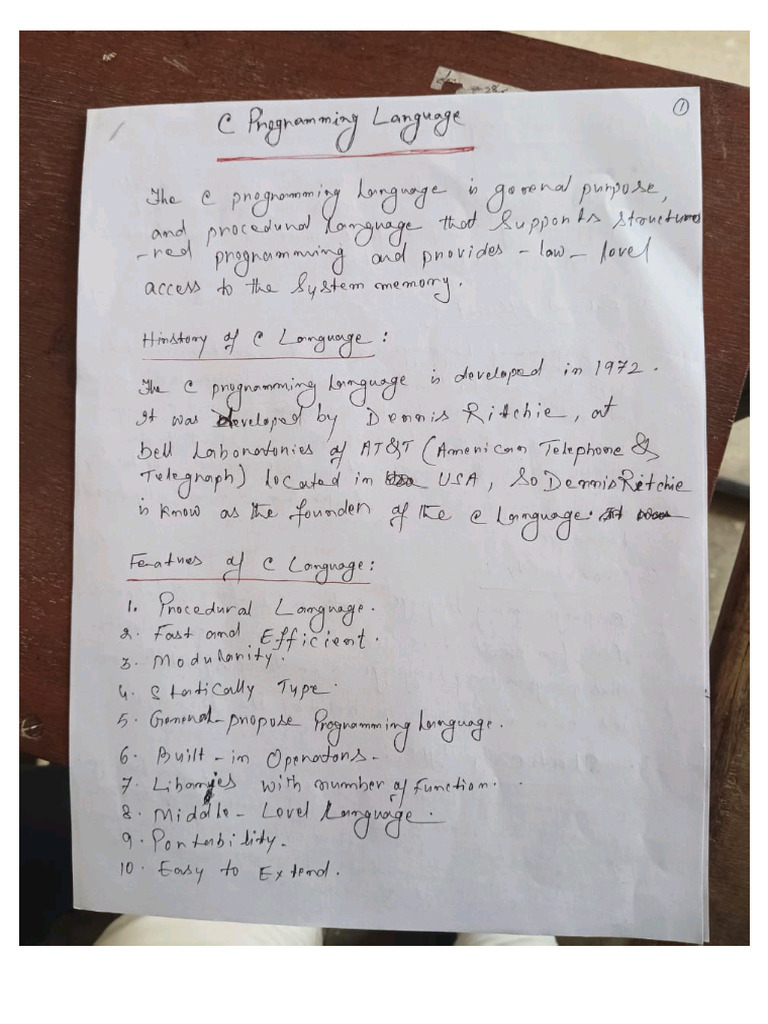 ①
C Programming Language
The C programming Language is general purpose,
and procedural Language that Supports structu
-red programming and provides - law - level
access to the System memory.
Hinstory of C Language :
The C programming Language is developed in 1972.
It was Developed by Dennis Ritchie, at
bell Laboratories of AT&T (American Telephone &
Telegraph) located in USA, So Dennis Ritchie
is know as the founder of the C Language.
Features of C Language :
1. Procedural Language.
2. Fast and Efficient.
3. Modularity.
4. Statically Type.
5. General-propose Programming Language.
6. Built-in Operators.
7. Libarries with number of function.
8. Middle-Level Language.
9. Portability.
10. Easy to Extend.